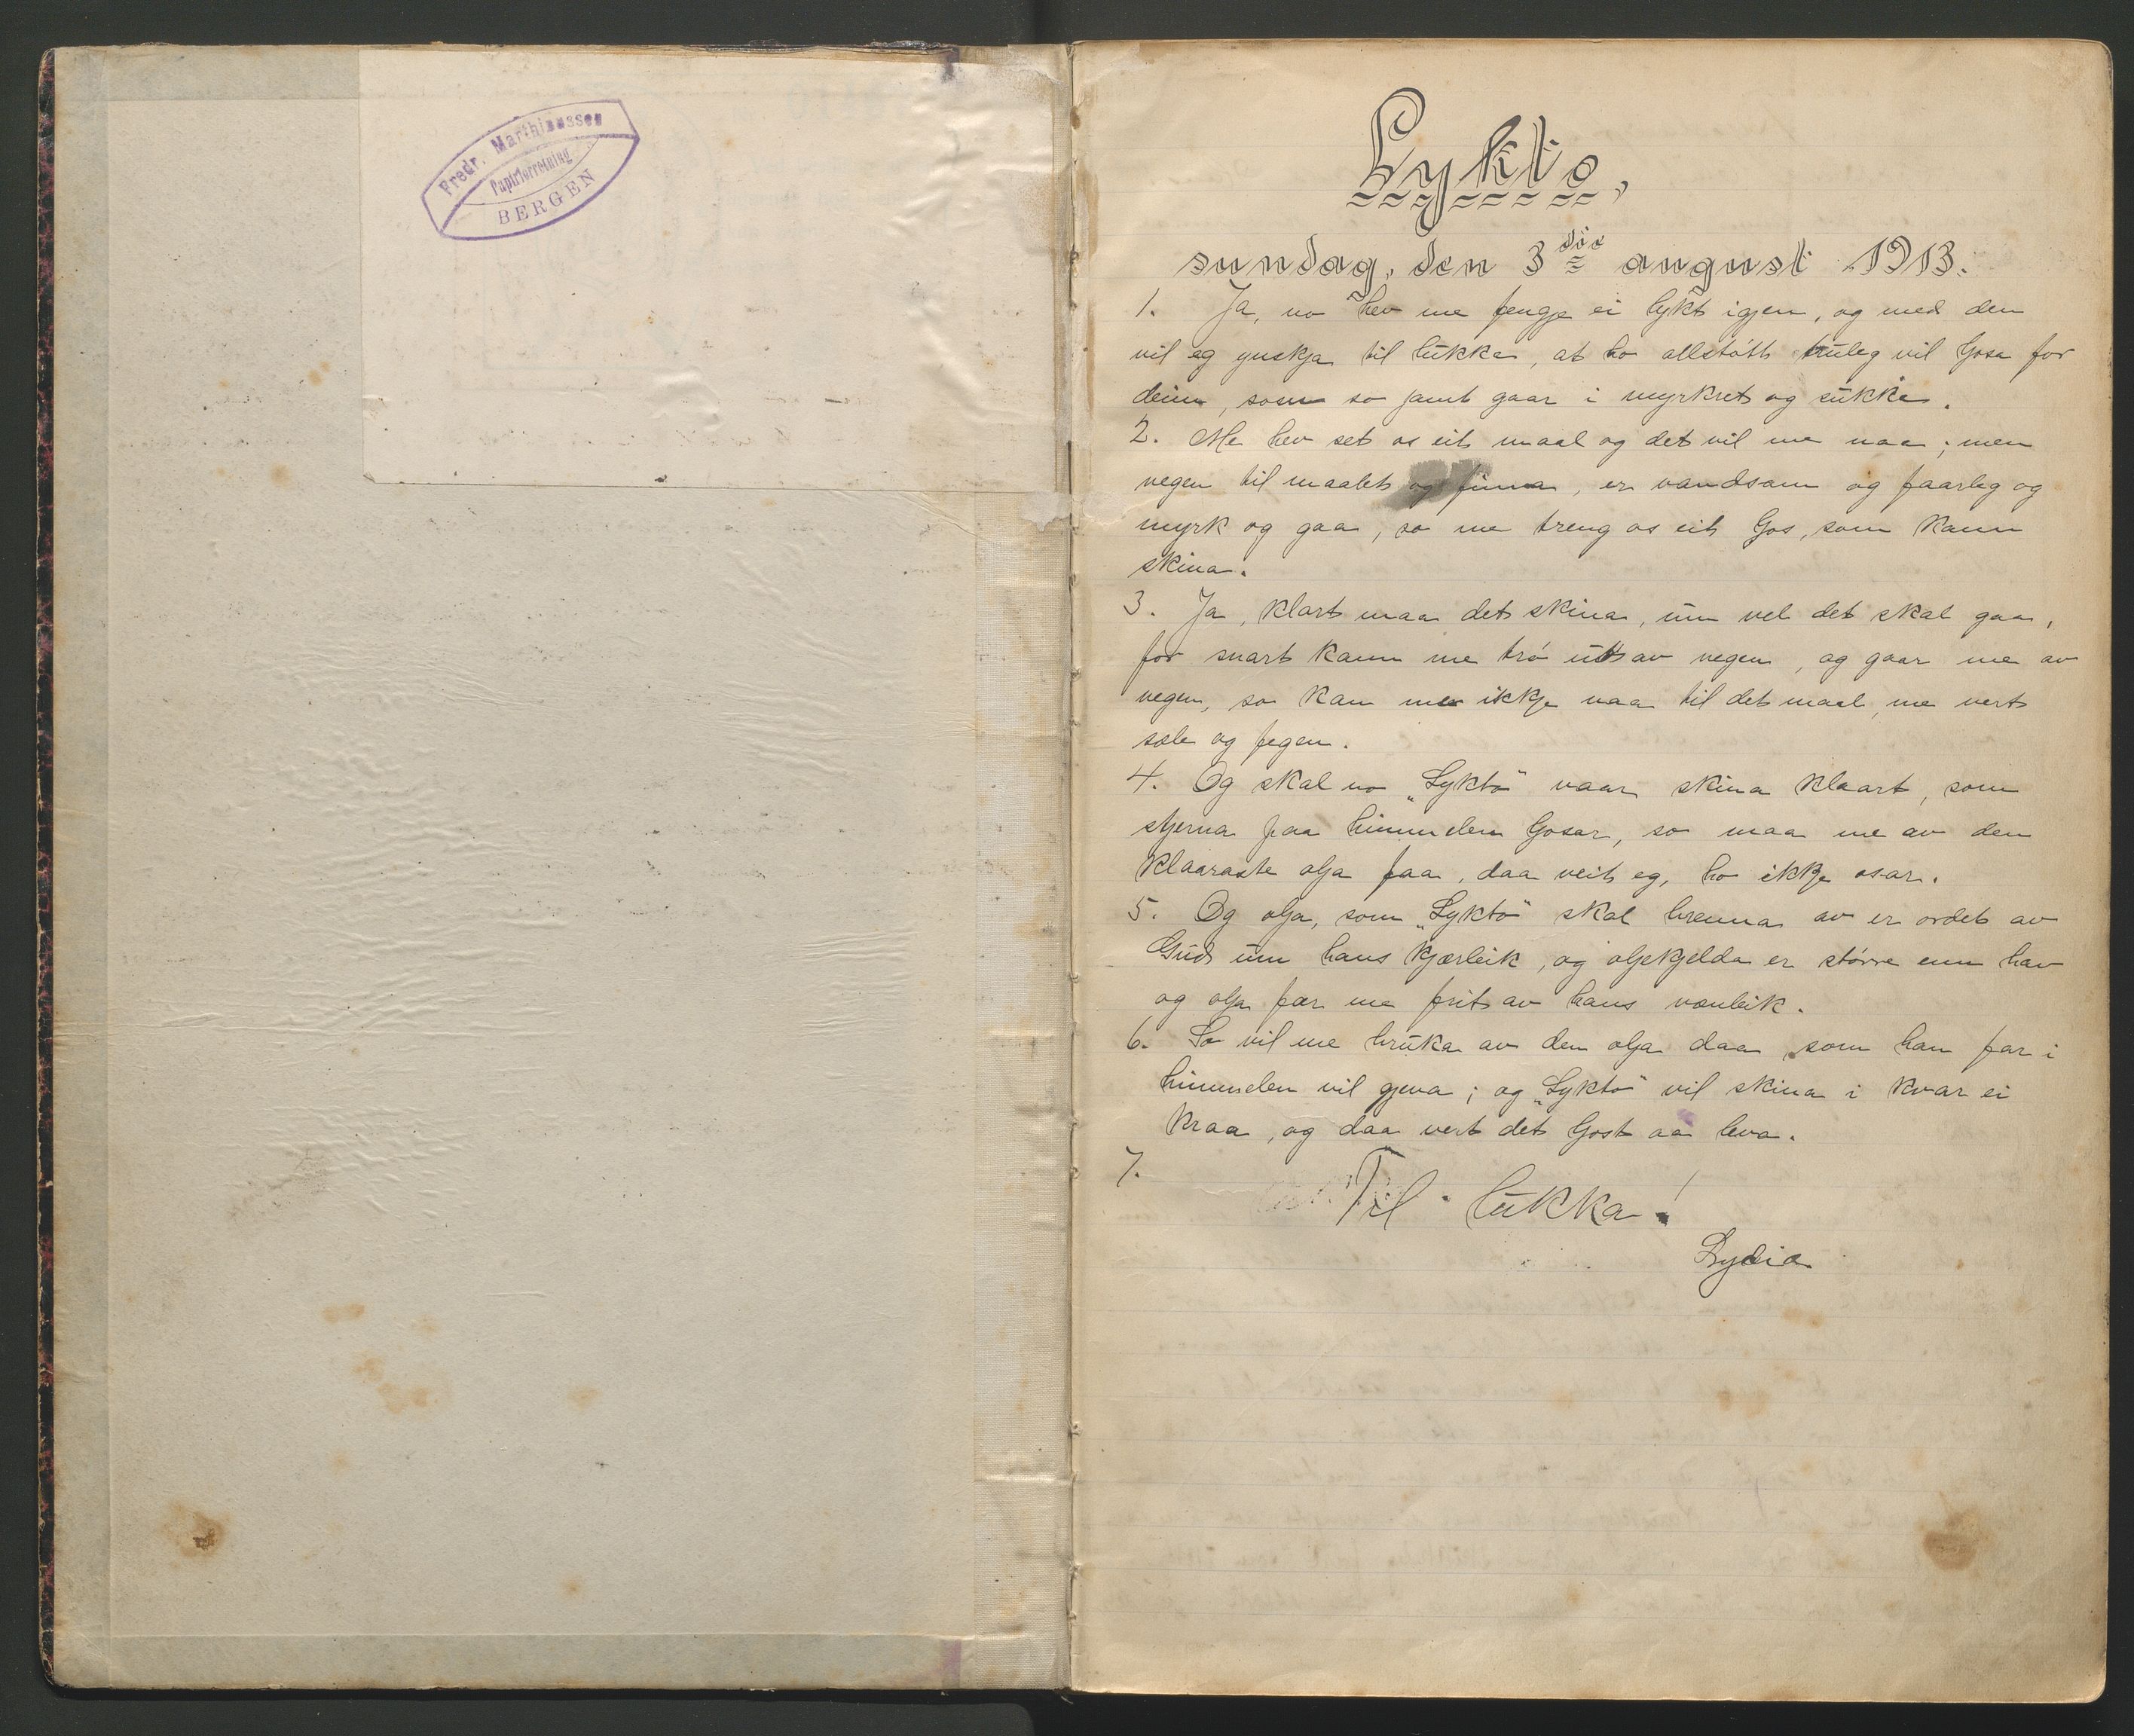 Fredr. Marthinussen
Papirforretning
BERGEN
Lykto,
sundag, den 3die august 1913.
1. Ja, no hev me fengje ei lykt igjen, og med den
vil eg ynskja til lukka, at ho allstøtt truleg vil ljosa for
deim, som so jamt gaar i myrkret og sukka.
2. Me hev set os eit maal og det vil me naa; men
vegen til maalet og finna, er vandsam og faarleg og
myrk og gaa, so me treng os eit ljos, som kann
skina.
3. Ja, klart maa det skina, um vel det skal gaa,
for snart kann me trø ut av vegen, og gaar me av
vegen, so kan me ikkje naa til det maal, me vert
sæle og fegen.
4. Og skal no „Lykto" vaar skina klaart, som
stjerna paa himmelen ljosar, so maa me av den
klaaraste olja faa, daa veit eg, ho ikkje osar.
5. Og olja, som „Lykto" skal brenna av er ordet av
Gud um hans kjærleik, og oljekjelda er større enn hav
og olja fær me frit av hans vænleik.
6. So vil me bruka av den olja daa, som han far i
himmelen vil gjeva; og „Lykto" vil skina i kvar ei
kraa, og daa vert det ljost aa leva.
7.
Til lukka!
Lydia